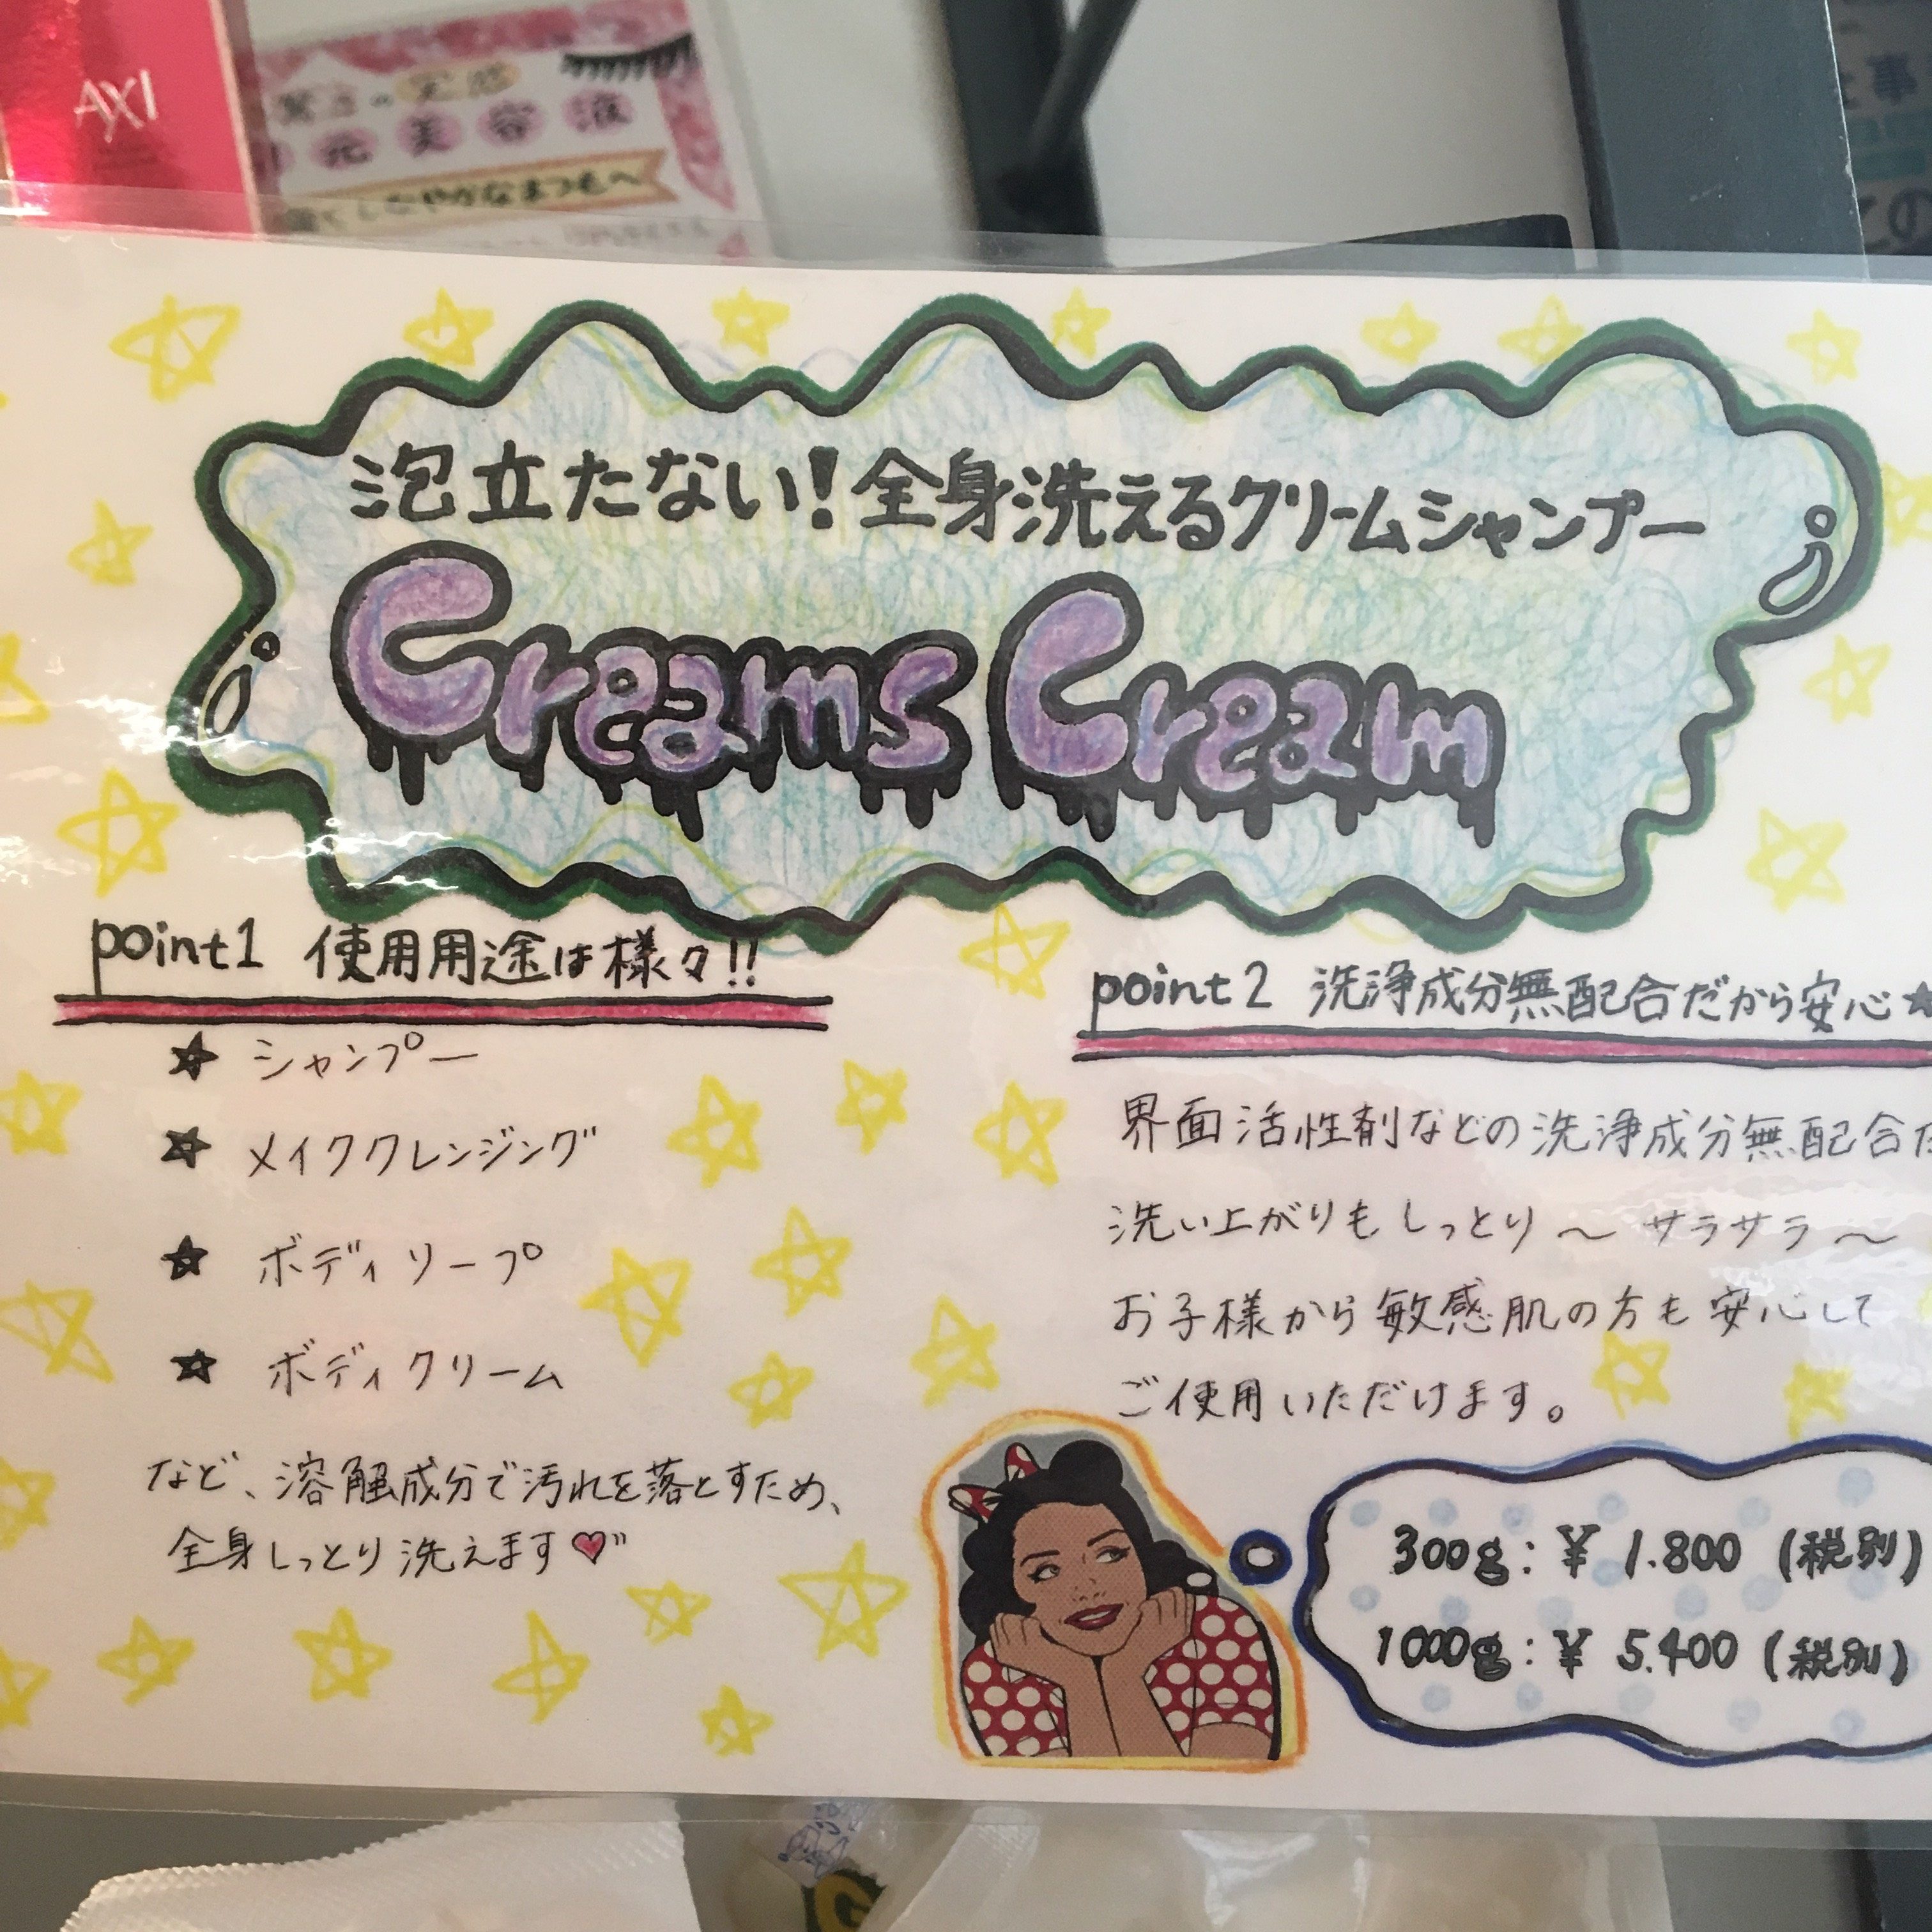 AXI
美容液
しなやかなまつもへ
泡立たない!全身洗えるクリームシャンプー
Creams Cream
point1 使用用途は様々!!
★ シャンプー
★ メイククレンジング
★ ボディソープ
★ ボディクリーム
など、溶解成分で汚れを落とすため、
全身しっとり洗えます♥
point2 洗浄成分無配合だから安心★
界面活性剤などの洗浄成分無配合だ
洗い上がりもしっとり〜サラサラ〜
お子様から敏感肌の方も安心して
ご使用いただけます。
300g:¥1.800(税別)
1000g:¥5.400(税別)